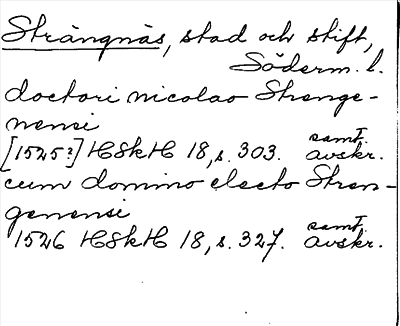 Strängnäs, stad och stift,
Söderm. l.
doctori nicolao Strenge-
nensi
[1525?] HSkH 18, s. 303. samt. avskr.
cum domino electo Stren-
genensi
1526 HSkH 18, s. 327. samt. avskr.